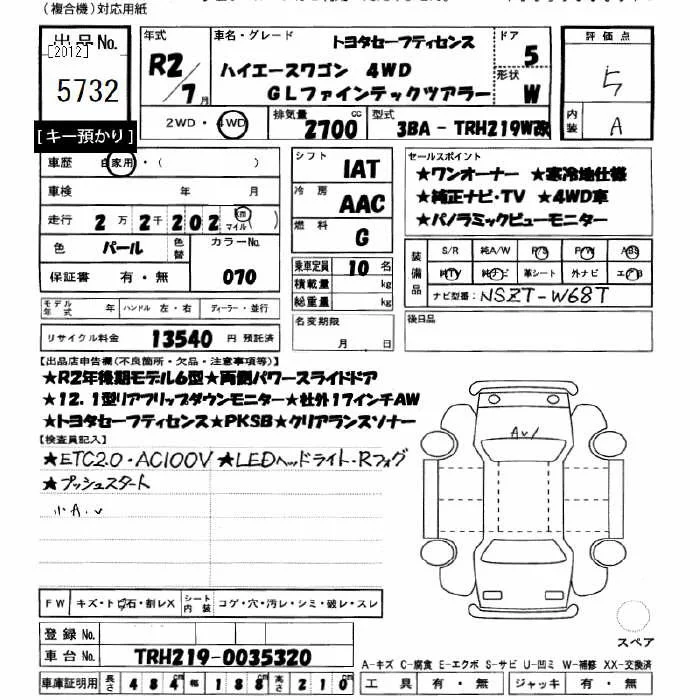 (複合機)対応用紙
出品No.
[2012]
5732
[キー預かり]
年式
R2/7月
車名・グレード
トヨタセーフティセンス
ハイエースワゴン 4WD
GLファインテックツアラー
ドア
5
形状
W
評価点
5
内装
A
2WD・4WD
排気量
2700cc
型式
3BA - TRH219W改
車歴 自家用・( )
車検 年 月
走行 2万2千202 km マイル ( )
色 パール 色替 カラーNo.
保証書 有・無 070
シフト
IAT
冷房
AAC
燃料
G
乗車定員 10 名
積載量 kg
総重量 kg
セールスポイント
★ワンオーナー ★寒冷地仕様
★純正ナビ・TV ★4WD車
★パノラミックビューモニター
装備品
S/R 純A/W P/S P/W ABS
純TV 純ナビ 革シート 外ナビ エアB
ナビ型番: NSZT-W68T
モデル年式 年 ハンドル 左・右 ディーラー・並行
名変期限
月 日
後日品
リサイクル料金 13540 円 預託済
【出品店申告欄(不良箇所・欠品・注意事項等)】
★R2年後期モデル6型★両側パワースライドドア
★12.1型リアフリップダウンモニター★社外17インチAW
★トヨタセーフティセンス★PKSB★クリアランスソナー
【検査員記入】
★ETC2.0・AC100V ★LEDヘッドライト・Rフォグ
★プッシュスタート
小A.v
Av/
FW キズ・トビ石・割レX シート内装 コゲ・穴・汚レ・シミ・破レ・スレ
登録No.
車台No. TRH219-0035320
スペア
A-キズ C-腐食 E-エクボ S-サビ U-凹ミ W-補修 XX-交換済
車庫証明用 長さ 484 幅 188 高さ 210
工具 有・無 ジャッキ 有・無